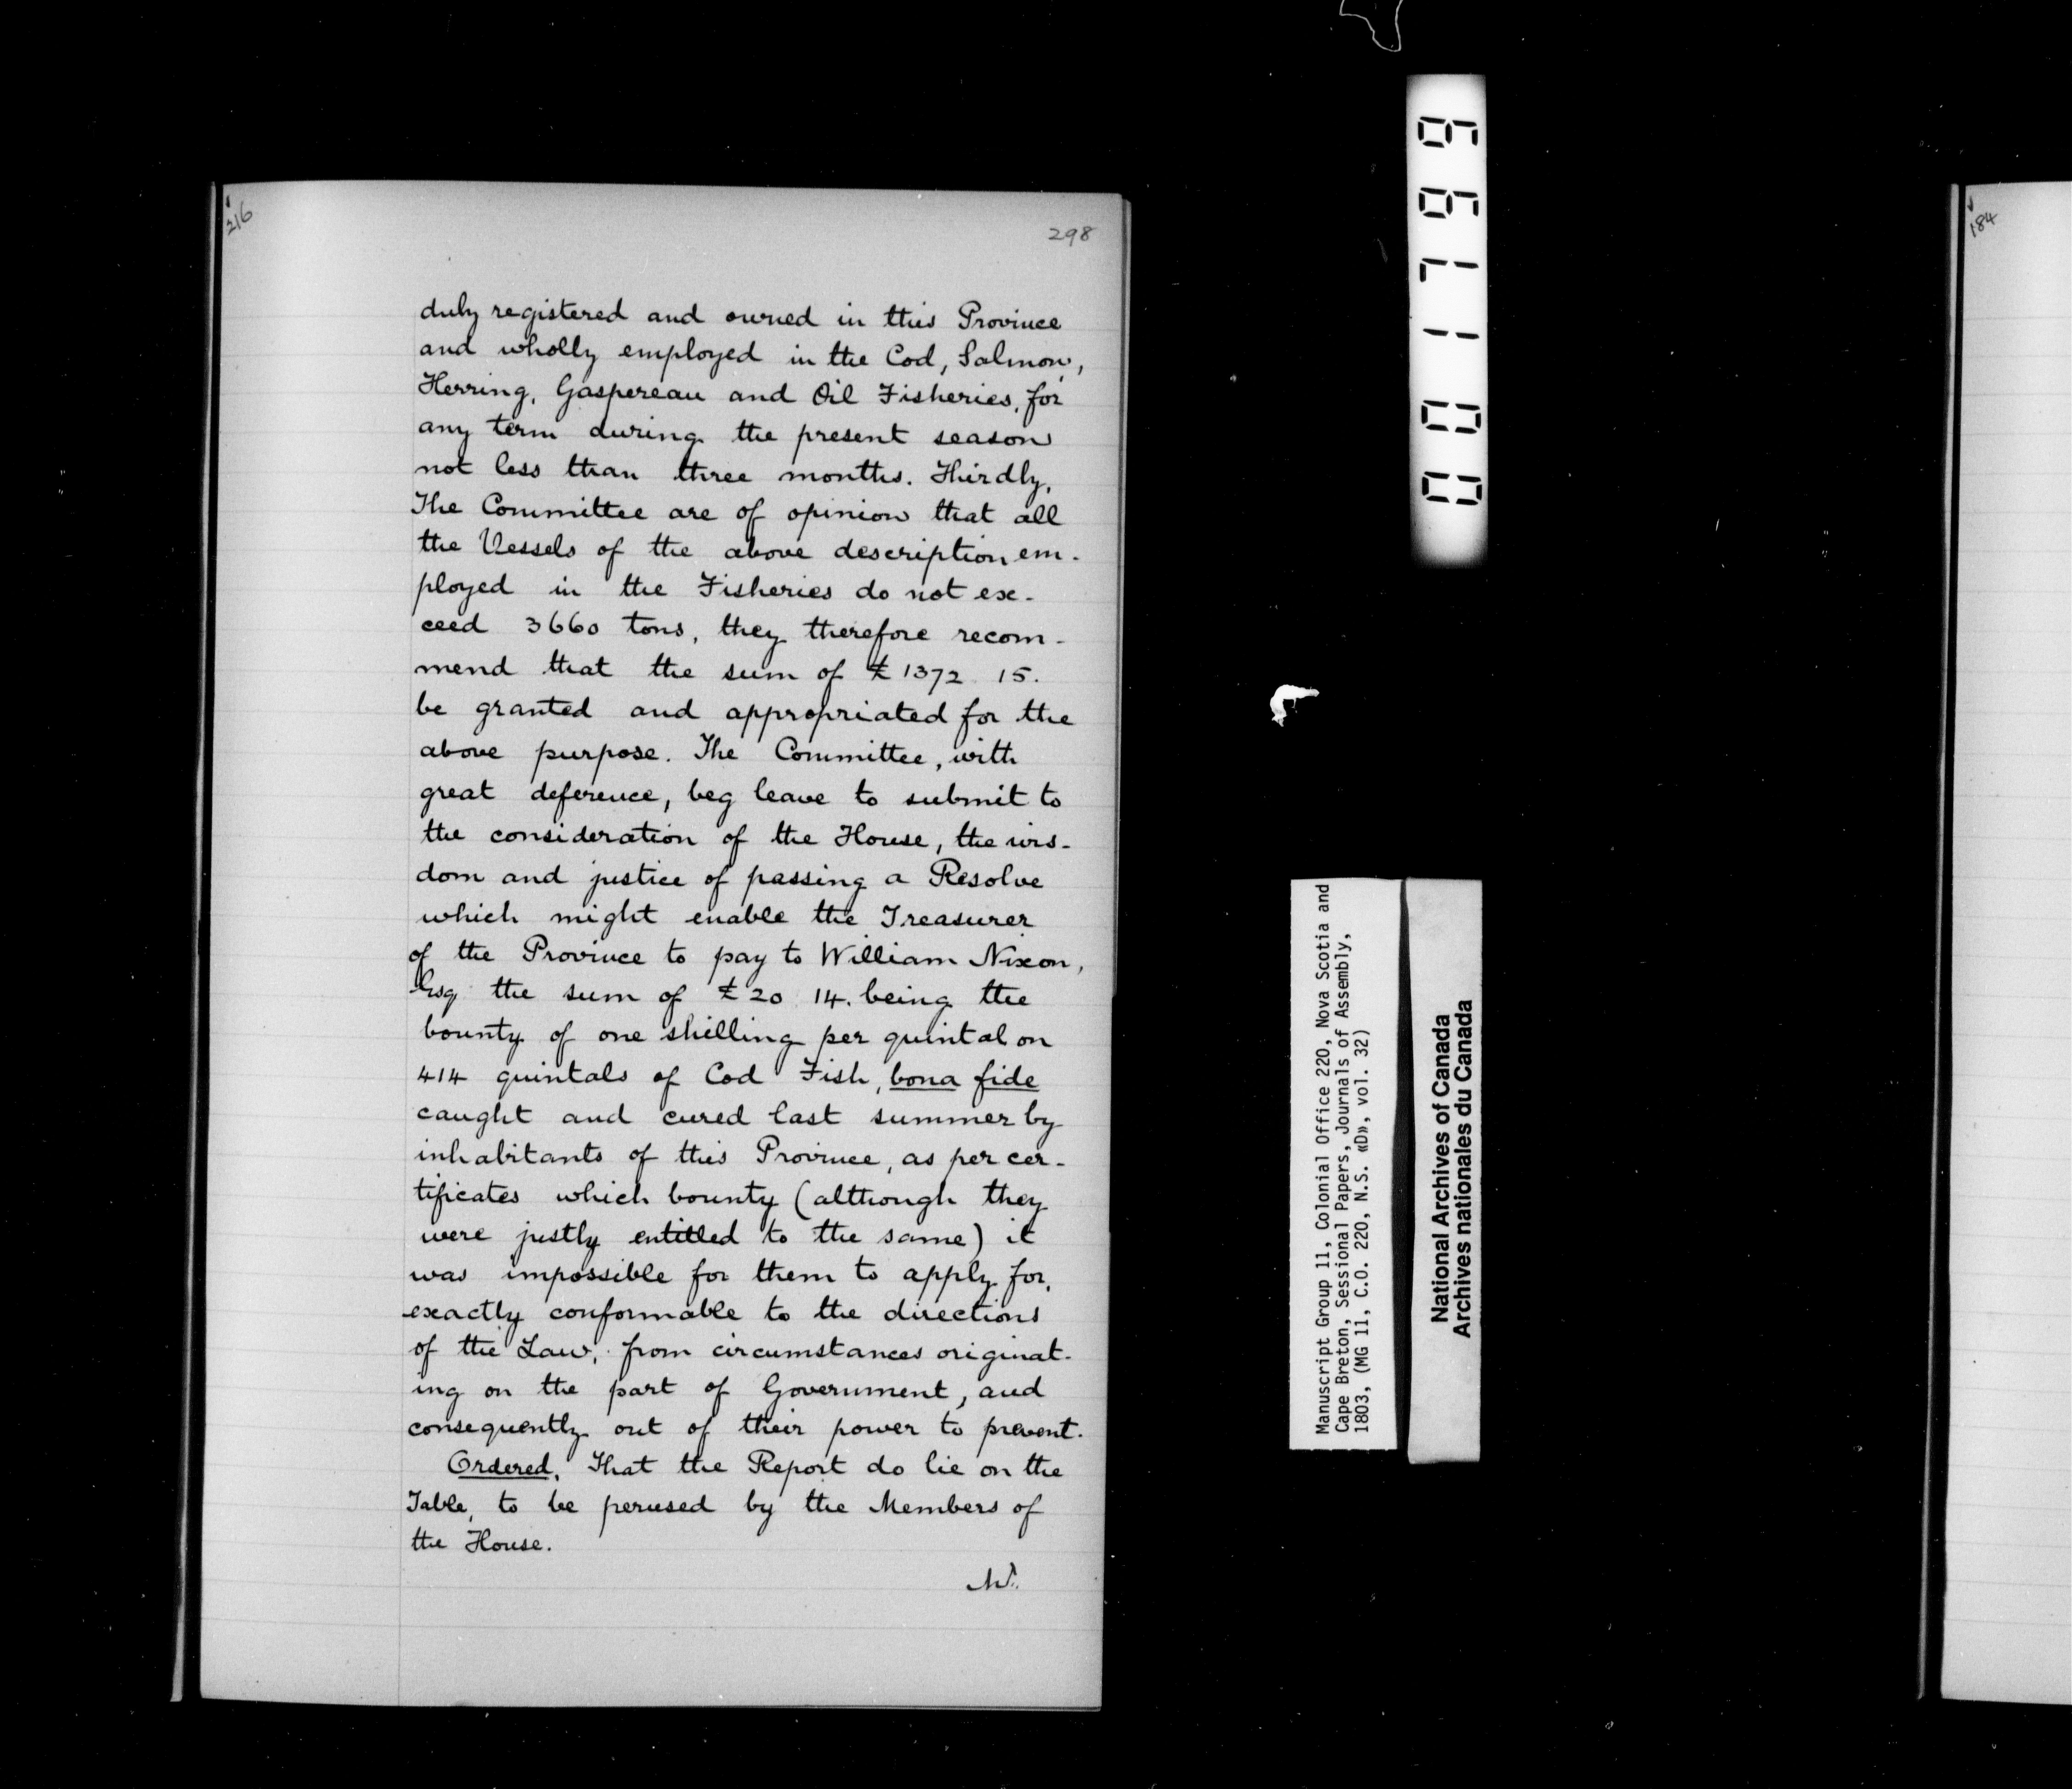 216
298
duly registered and owned in this Province
and wholly employed in the Cod, Salmon,
Herring, Gaspereau and Oil Fisheries, for
any term during the present season
not less than three months. Thirdly,
The Committee are of opinion that all
the Vessels of the above description em-
ployed in the Fisheries do not ex-
ceed 3660 tons, they therefore recom-
mend that the sum of £1372 15.
be granted and appropriated for the
above purpose. The Committee, with
great deference, beg leave to submit to
the consideration of the House, the wis-
dom and justice of passing a Resolve
which might enable the Treasurer
of the Province to pay to William Nixon,
Esq the sum of £20 14. being the
bounty of one shilling per quintal on
414 quintals of Cod Fish, bona fide
caught and cured last summer by
inhabitants of this Province, as per cer-
tificates which bounty (although they
were justly entitled to the same) it
was impossible for them to apply for,
exactly conformable to the directions
of the Law, from circumstances originat-
ing on the part of Government, and
consequently out of their power to prevent.
Ordered, That the Report do lie on the
Table, to be perused by the Members of
the House.
Mr.
001799
Manuscript Group 11, Colonial Office 220, Nova Scotia and
Cape Breton, Sessional Papers, Journals of Assembly,
1803, (MG 11, C.O. 220, N.S. «D», vol. 32)
National Archives of Canada
Archives nationales du Canada
184